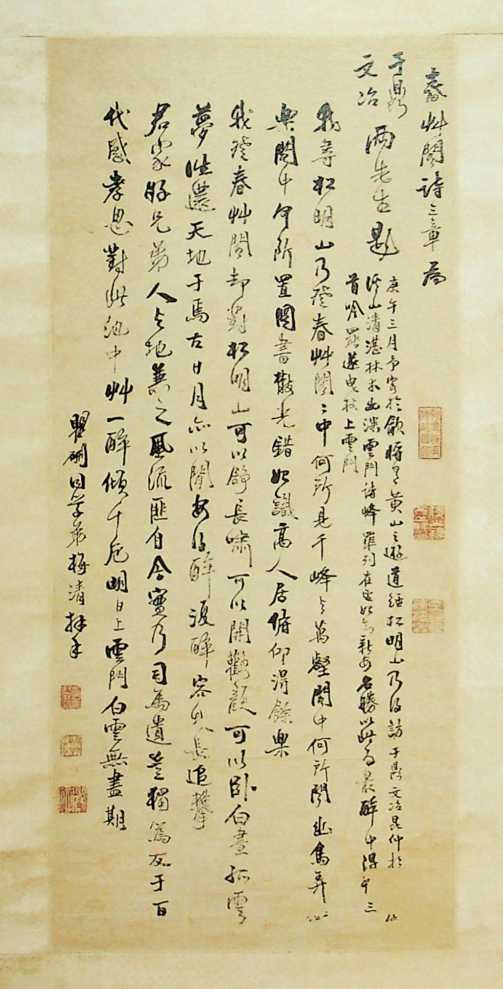 春艸閣詩三章為
于鼎
文冶 兩先生題
庚午三月予客於歙將有黃山之遊道經松明山乃得訪于鼎文冶昆仲於
溪山清湛林木幽深雲門諸峰羅列在望如新安名勝以此為最醉中得句三
首吟罷遂曳杖上雲門
我尋松明山乃登春艸閣閣中何所見千峰與萬壑閣中何所聞幽鳥弄
樂閣中何所置圖書散光錯始識高人居俯仰得餘樂
我登春艸閣却對松明山可以舒長嘯可以開歡顏可以臥白晝孤雲
夢往還天地于焉古日月亦以閒安得醉復醉容我長追攀
君家好兄弟人與地兼之風流匪自今實乃司馬遺豈獨篤友于百
代感孝思對此池中艸一醉傾千卮明日上雲門白雲無盡期
瞿硎同學弟梅清拜手